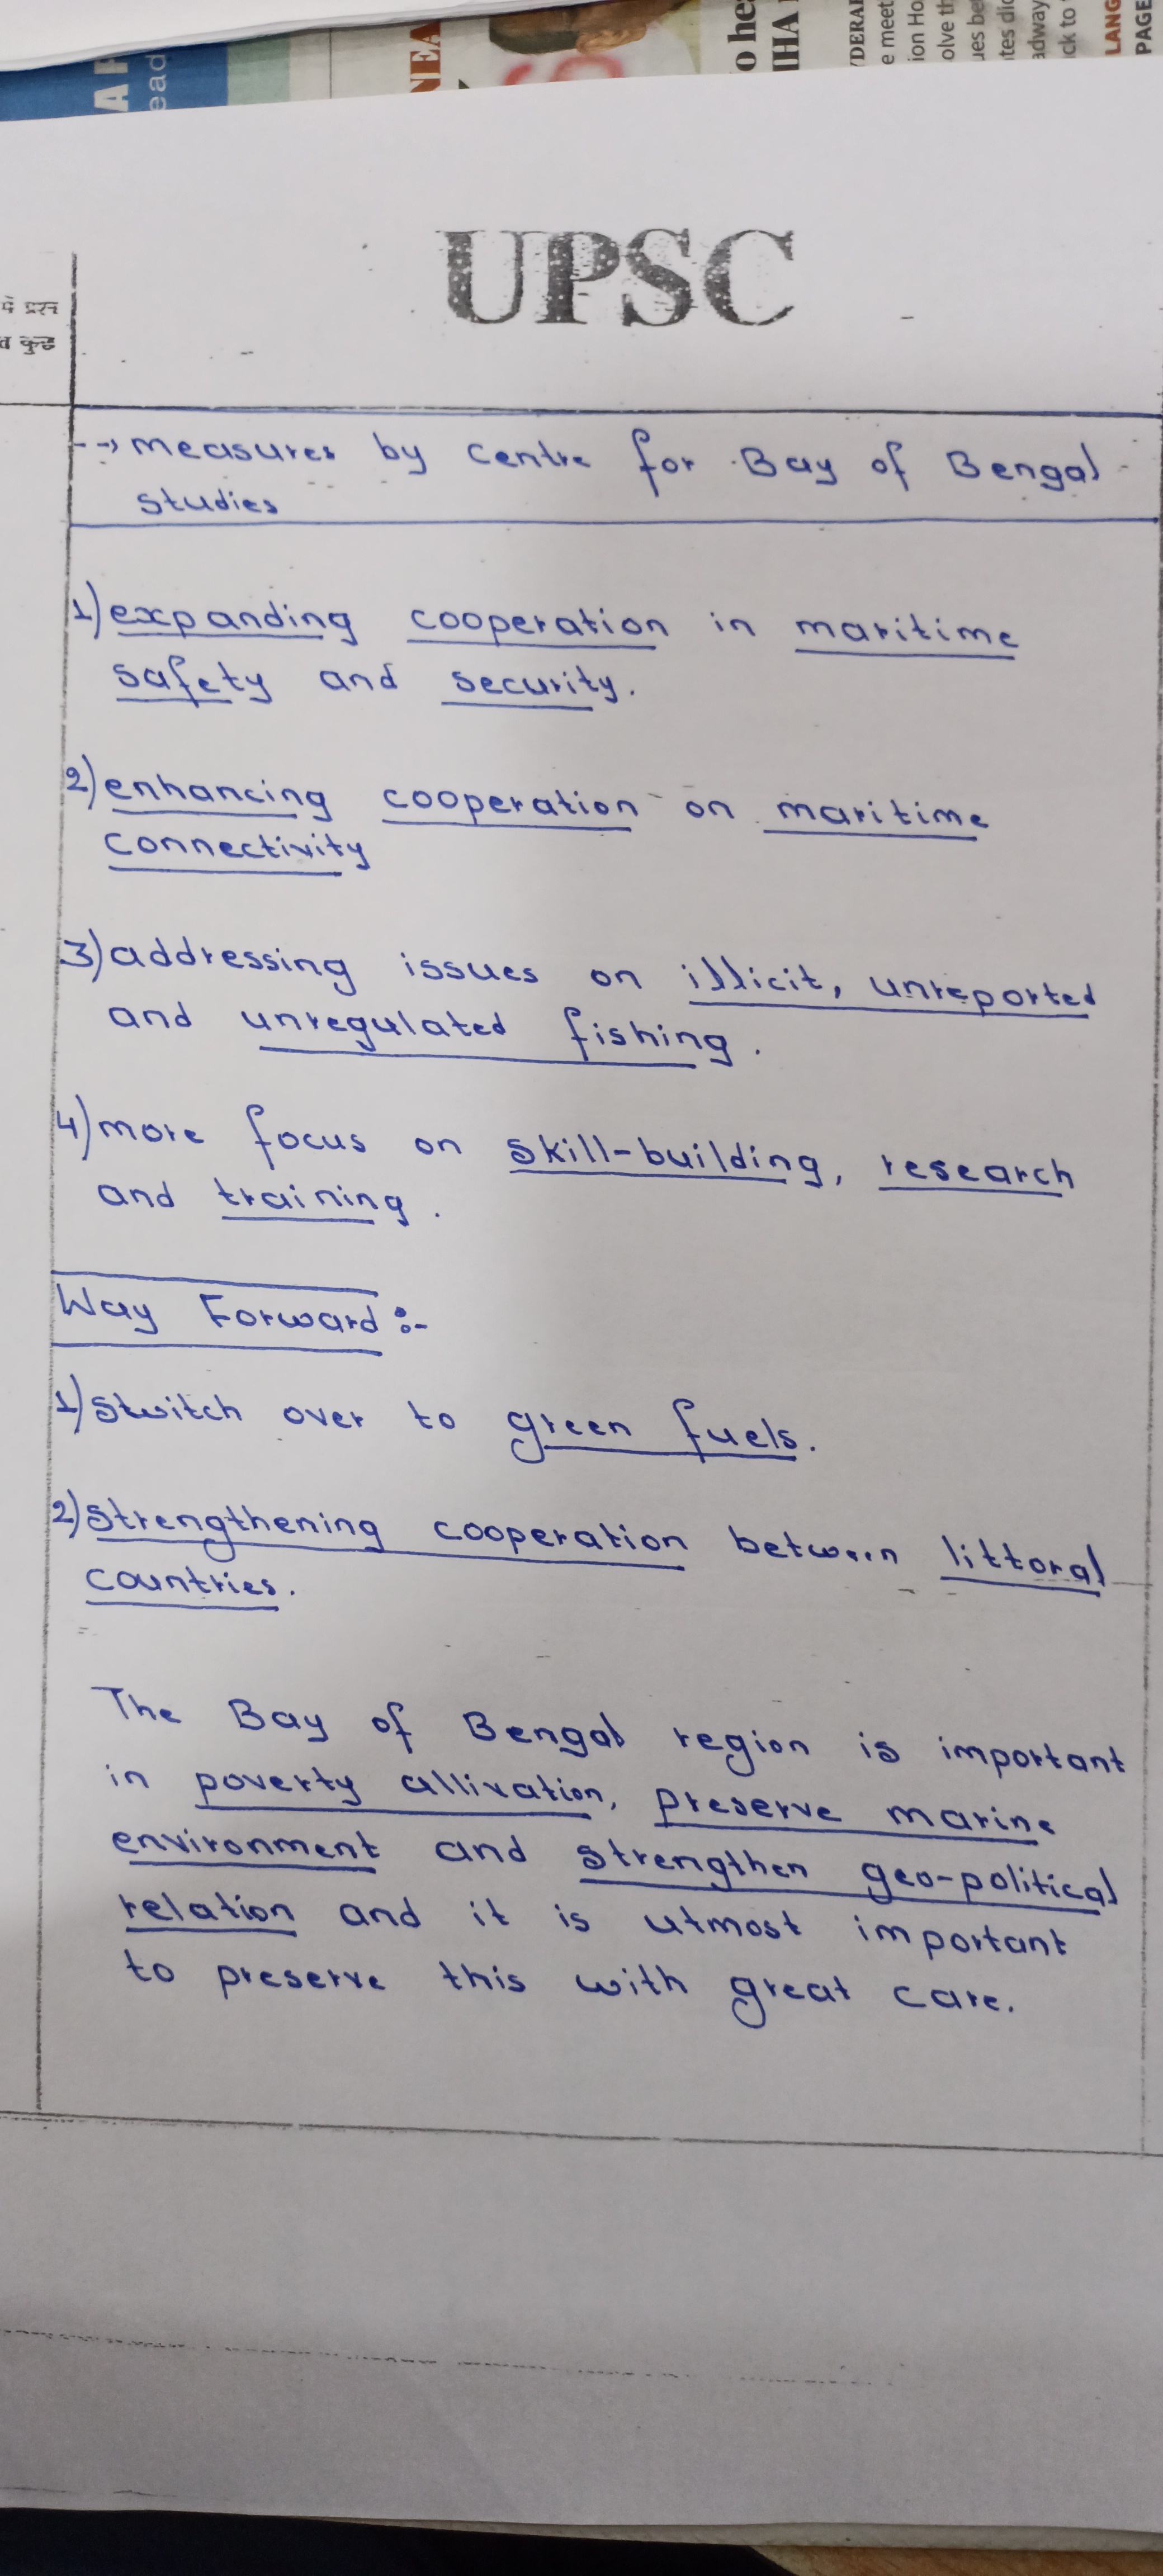 A F
ead
NEA
o he
IHA
DERA
e meet
ion Ho
olve th
ues be
tes di
adway
ck to
LANG
PAGE
UPSC
में प्रश्न
त कुछ
--> measures by centre for Bay of Bengal
studies
1) expanding cooperation in maritime
safety and security.
2) enhancing cooperation on maritime
connectivity
3) addressing issues on illicit, unreported
and unregulated fishing.
4) more focus on skill-building, research
and training.
Way Forward :-
1) switch over to green fuels.
2) strengthening cooperation between littoral
countries.
The Bay of Bengal region is important
in poverty allivation, preserve marine
environment and strengthen geo-political
relation and it is utmost important
to preserve this with great care.